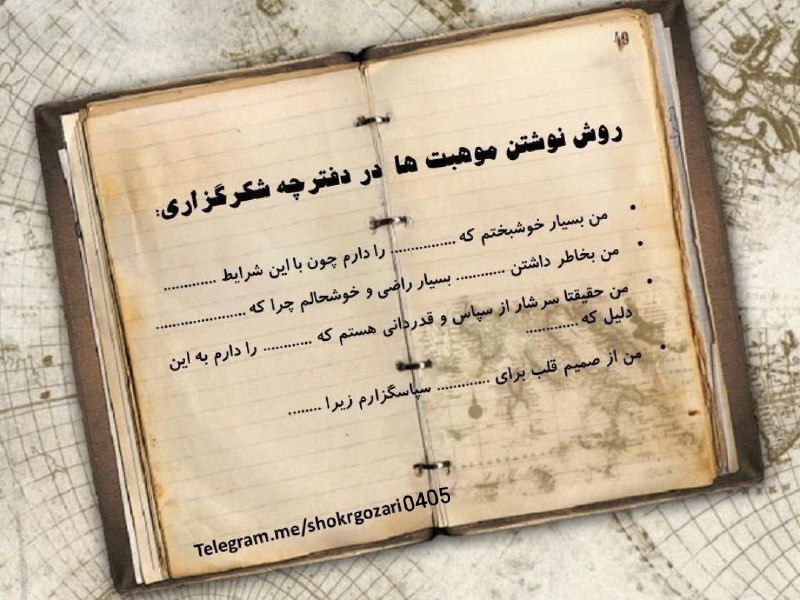 49
روش نوشتن موهبت ها در دفترچه شکرگزاری:
• من بسیار خوشبختم که ............... را دارم چون با این شرایط .............
• من بخاطر داشتن ............ بسیار راضی و خوشحالم چرا که ......................
• من حقیقتا سرشار از سپاس و قدردانی هستم که ............ را دارم به این
دلیل که .............
• من از صمیم قلب برای ............. سپاسگزارم زیرا ........
Telegram.me/shokrgozari0405